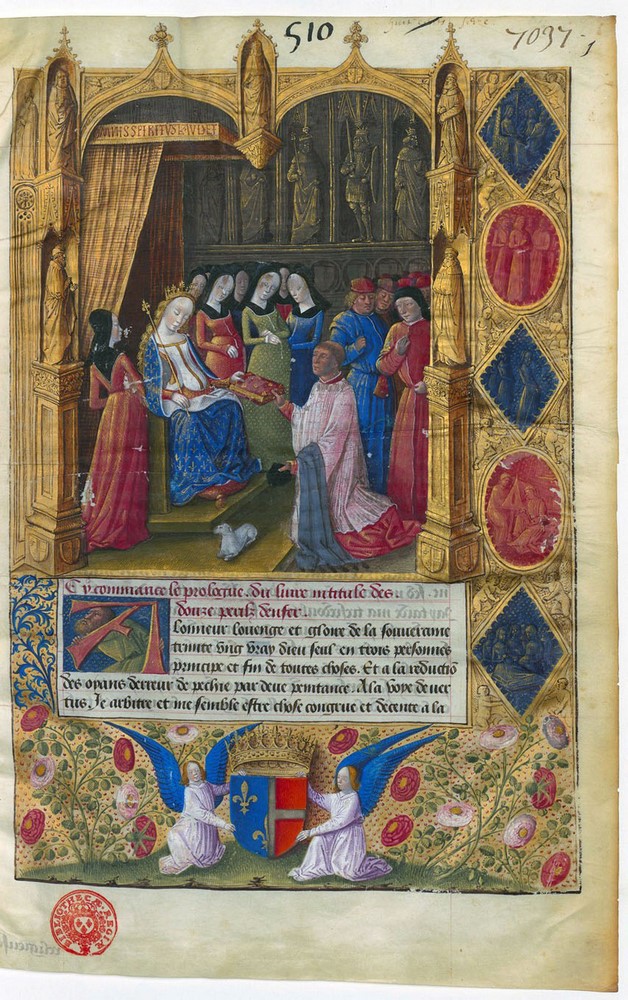 510
7037.
1
OMNIS SPIRITUS LAUDET
Cy commance le prologue. du livre intitule des
douze perilz denfer.
A lonneur louenge et gloire de la souveraine
trinite Ung vray dieu seul en trois personnes
principe et fin de toutes choses. Et a la reductiõ
des oyans derreur de pechie par deue penitance. A la voye de ver
tus. Je arbitre et me semble estre chose congrue et decente a la
BIBLIOTHECÆ REGIÆ